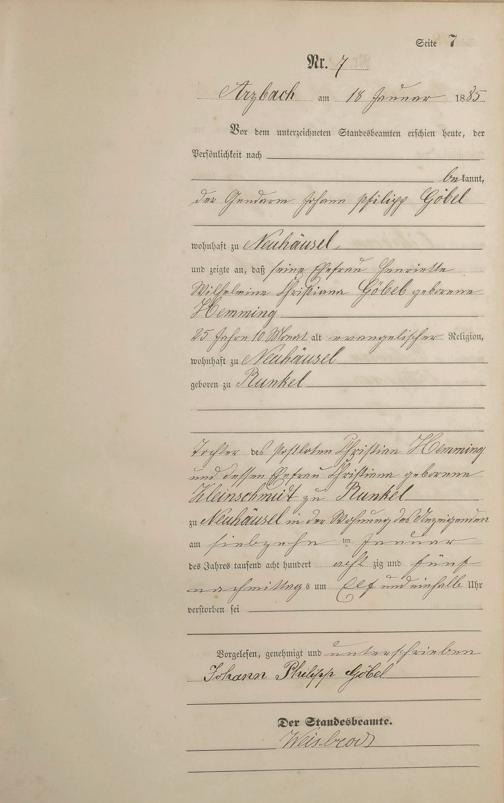 Seite 7
Nr. 7
Arzbach am 18 Januar 1885
Vor dem unterzeichneten Standesbeamten erschien heute, der
Persönlichkeit nach
bekannt,
der Gendarm Johann Philipp Göbel
wohnhaft zu Neuhäusel,
und zeigte an, daß seine Ehefrau Henriette
Wilhelmine Christiana Göbel geborene
Hemming
25 Jahre 10 Monat alt evangelischer Religion,
wohnhaft zu Neuhäusel
geboren zu Runkel
Tochter des Postboten Christian Hemming
und dessen Ehefrau Christiana geborene
Kleinschmidt zu Runkel
zu Neuhäusel in der Wohnung des Anzeigenden
am siebzehn im Januar
des Jahres tausend acht hundert acht zig und fünf
nachmittags um Elf und einhalb Uhr
verstorben sei
Vorgelesen, genehmigt und unterschrieben
Johann Philipp Göbel
Der Standesbeamte.
Weisbrod